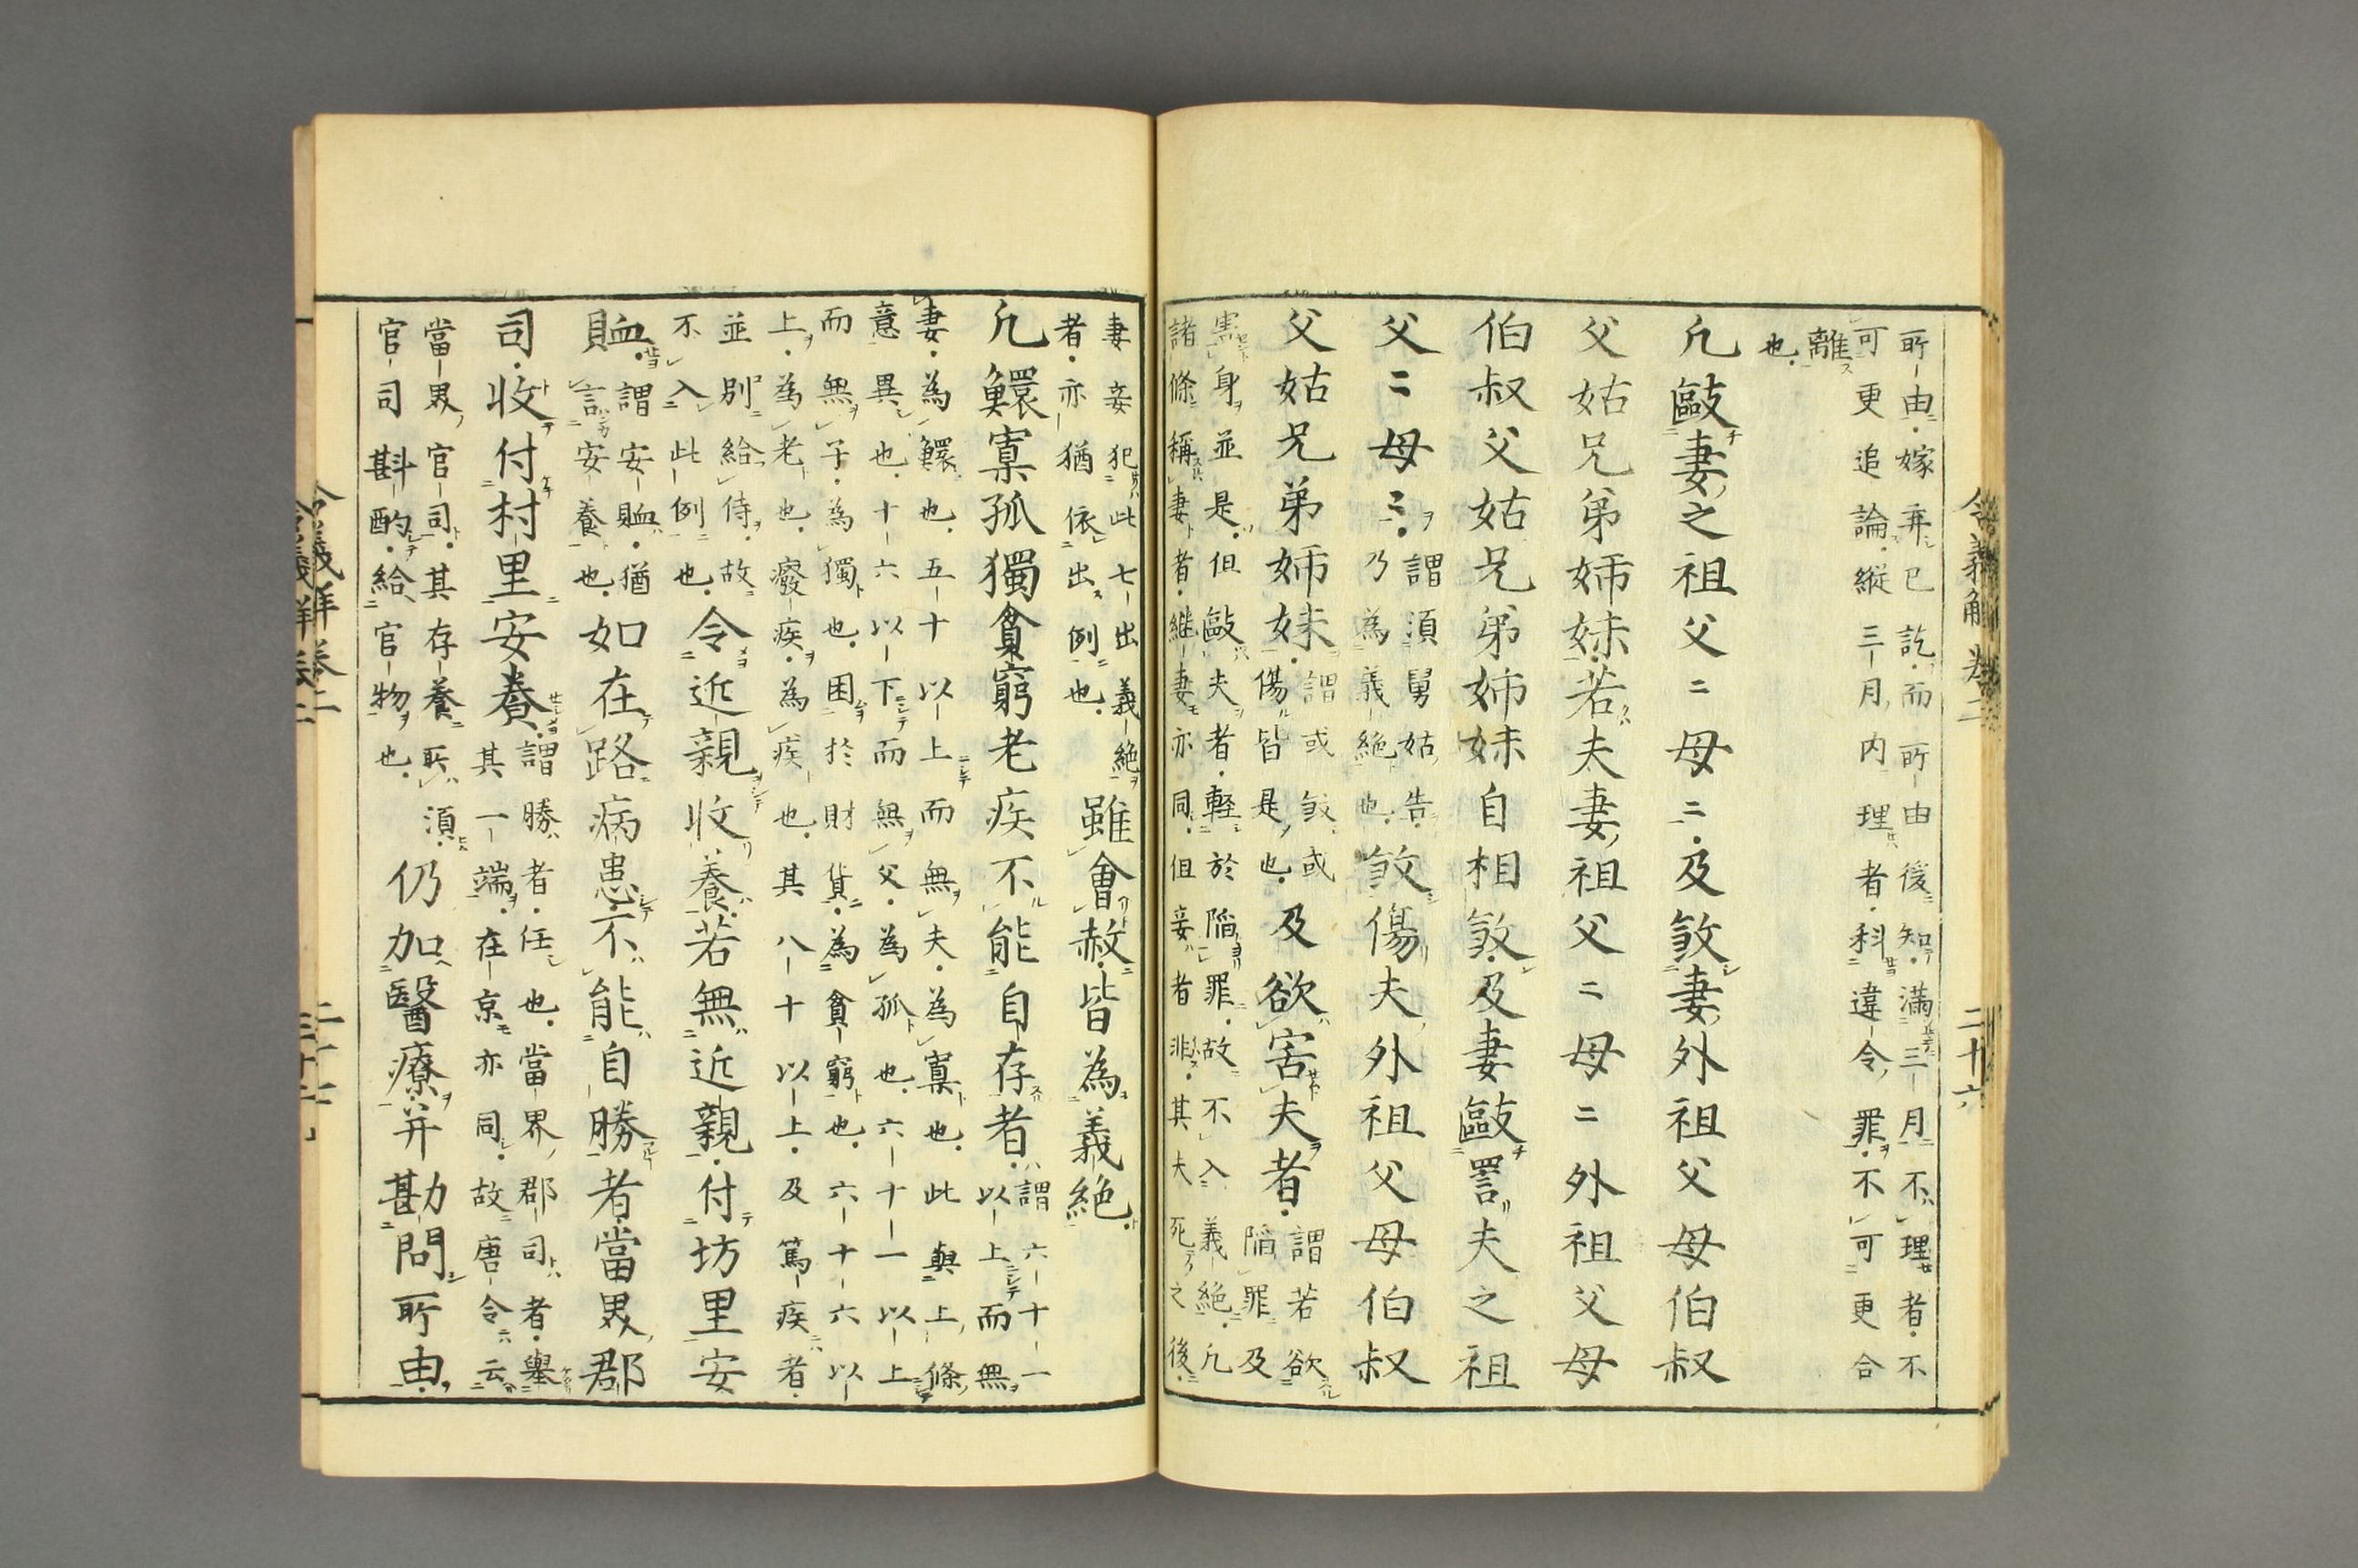 所由嫁弃已訖而所由後知満三月不理者不
可更追論縦三月内理者科違令罪不可更合
離
也
凢毆妻之祖父〻母〻及敜妻外祖父母伯叔
父姑兄弟姉妹若夫妻祖父〻母〻外祖父母
伯叔父姑兄弟姉妹自相敜及妻毆詈夫之祖
父〻母〻
謂須舅姑告
乃為義絶也
敜傷夫外祖父母伯叔
父姑兄弟姉妹
謂或敜或
傷皆是也
及欲害夫者
謂若欲
陥罪及
害身並是但毆夫者軽於陥罪故不入義絶凢
諸條稱妻者継妻亦同但妾者非其夫死之後
妻妾犯此七出義絶
者亦猶依出例也
雖會赦皆為義絶
凢鰥寡孤獨貧窮老疾不能自存者
謂六十一
以上而無
妻為鰥也五十以上而無夫為寡也此與上條
意異也十六以下而無父為孤也六十一以上
而無子為獨也困於財貨為貧窮也六十六以
上為老也癈疾為疾也其八十以上及篤疾者
並別給侍故
不入此例也
令近親收養若無近親付坊里安
賉
謂安賉猶
言安養也
如在路病患不能自勝者當界郡
司收付村里安養
謂勝者任也當界郡司者舉
其一端在京亦同故唐令云
當界官司其存養所須
官司斟酌給官物也
仍加醫療并勘問所由
令義解巻二
二十六